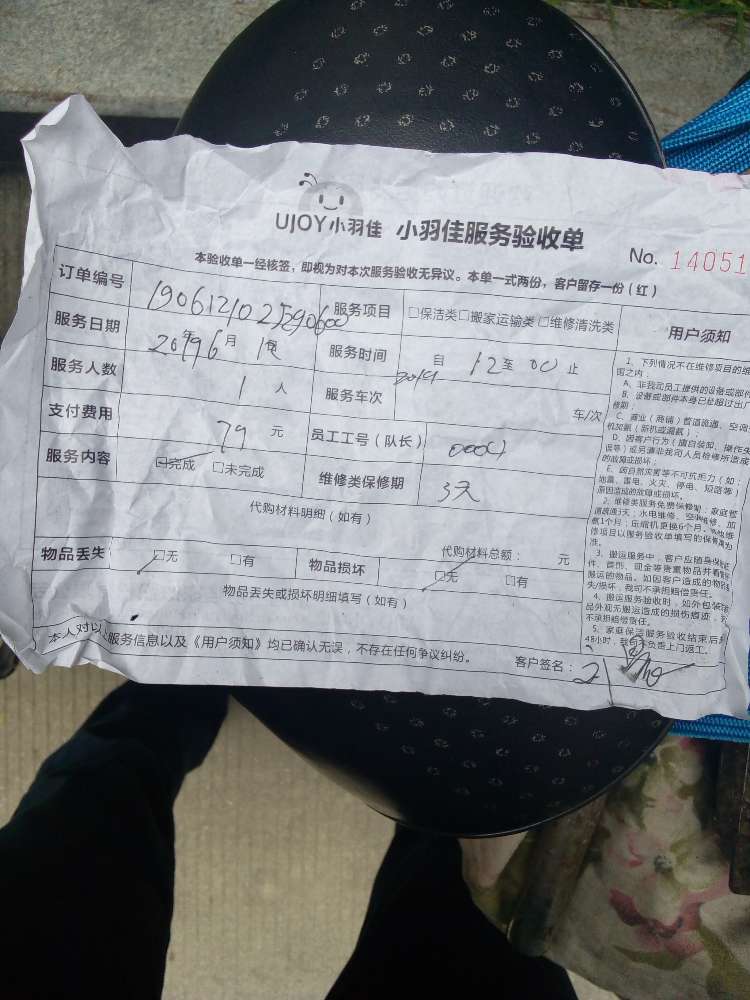 UJOY小羽佳 小羽佳服务验收单
No. 14051
本验收单一经核签，即视为对本次服务验收无异议。本单一式两份，客户留存一份（红）
订单编号
服务项目 □保洁类□搬家运输类□维修清洗类
用户须知
服务日期 2019年6月
服务时间 自 12至 00 止
服务人数 1 人
服务车次 2019 车/次
支付费用 79 元
员工工号（队长）
服务内容 □完成 □未完成
维修类保修期 3天
代购材料明细（如有）
代购材料总额： 元
物品丢失 □无 □有 物品损坏 □无 □有
物品丢失或损坏明细填写（如有）
本人对以上服务信息以及《用户须知》均已确认无误，不存在任何争议纠纷。
客户签名：
1、下列情况不在维修项目的维
围之内：
A、非我司员工提供的设备或部件
B、设备或部件本身已经超过出厂
修期；
C、商业（商铺）管道疏通、空调
机加氨（新机或漏氨）；
D、因客户行为（擅自装卸、操作失
误等）或另请非我司人员检修所造成
的故障或损坏；
E、因自然灾害等不可抗拒力（如：
地震、雷电、火灾、停电、短路等）
原因造成的故障或损坏。
2、维修类服务免费保修期：家庭管
道疏通3天，水电维修、空调维修、加
氨1个月；压缩机更换6个月
修项目以服务验收单填写的保
准。
3、搬运服务中，客户应随身
件、首饰、现金等贵重物品并看
搬运的物品，如因客户造成的物
失/损坏，我司不承担赔偿责任。
4、搬运服务验收时，如外包装
品外观无搬运造成的损伤痕迹，
不承担赔偿责任。
5、家庭保洁服务验收结束后
48小时，我司不负责上门返工。